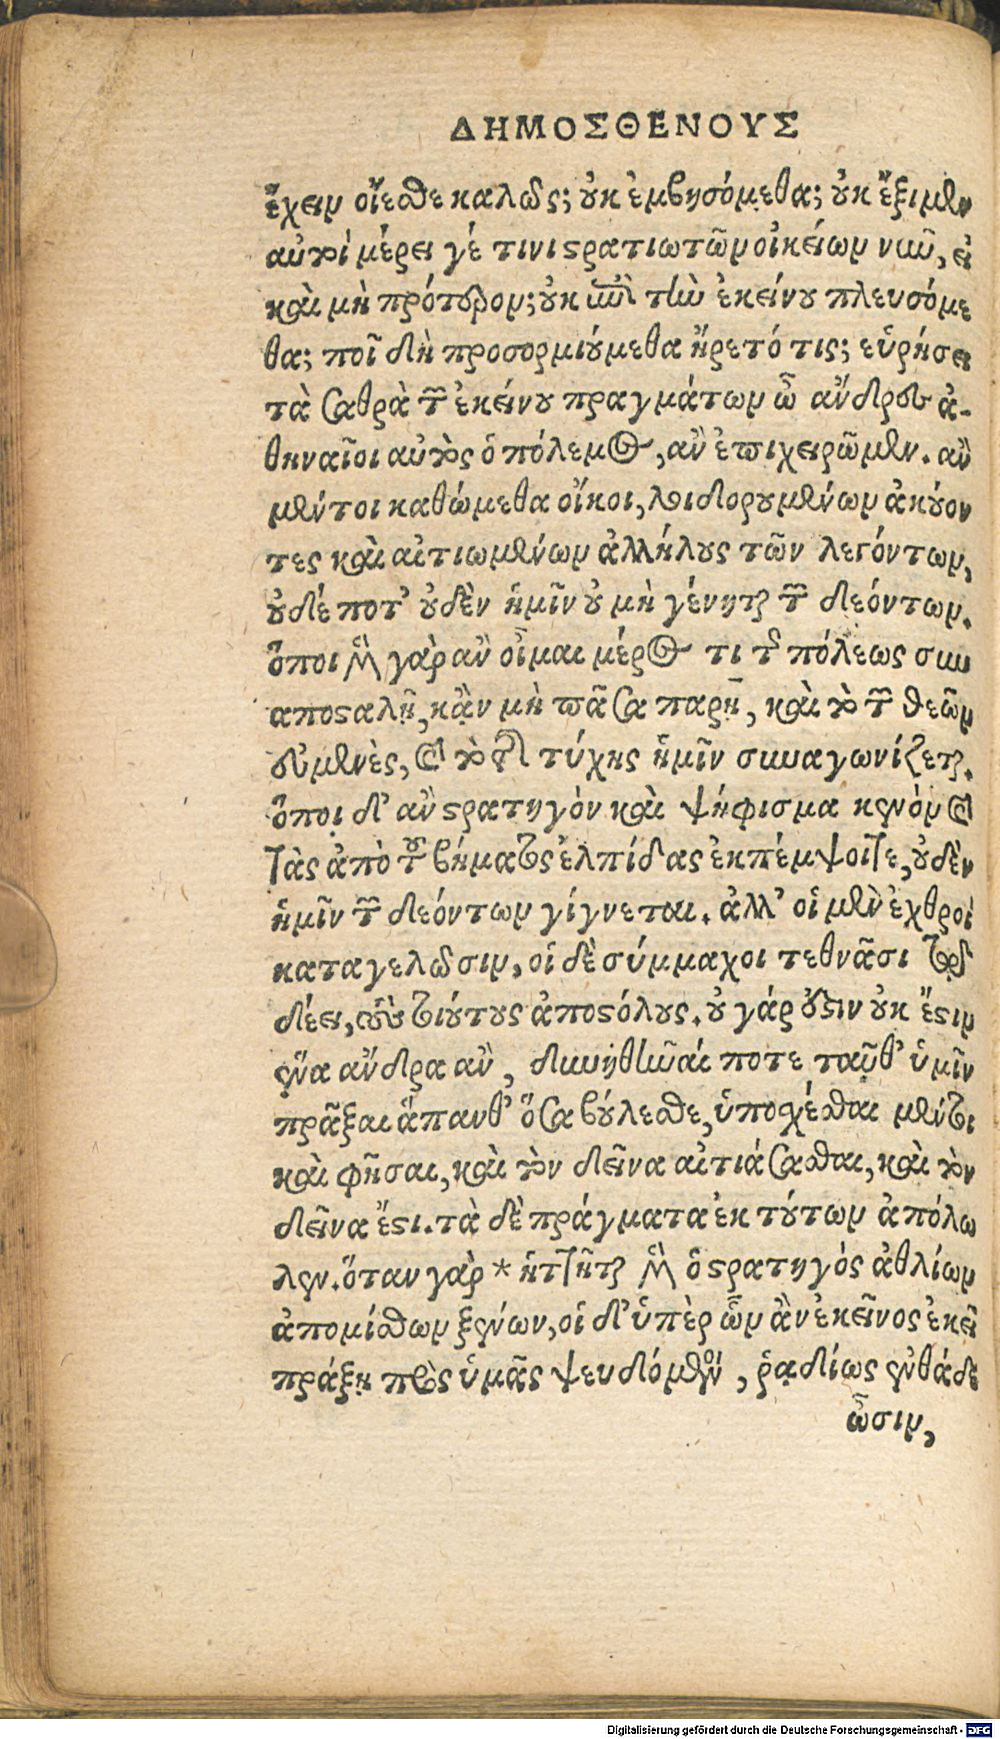 ΔΗΜΟΣΘΕΝΟΥΣ
ἔχειν οἴεσθε καλῶς; οὐκ ἐμβησόμεθα; οὐκ ἔξιμεν
αὐτοὶ μέρει γέ τινι στρατιωτῶν οἰκείων νῦν, εἰ
καὶ μὴ πρότερον; οὐκ ἐπὶ τὴν ἐκείνου πλευσόμε
θα; ποῖ δὴ προσορμιούμεθα ἤρετό τις; εὑρήσει
τὰ σαθρὰ τῶν ἐκείνου πραγμάτων ὦ ἄνδρες ἀ-
θηναῖοι αὐτὸς ὁ πόλεμος, ἂν ἐπιχειρῶμεν. ἂν
μέντοι καθώμεθα οἴκοι, λοιδορουμένων ἀκούον
τες καὶ αἰτιωμένων ἀλλήλους τῶν λεγόντων,
οὐδέ ποτ' οὐδὲν ἡμῖν οὐ μὴ γένηται τῶν δεόντων.
ὅποι μὲν γὰρ ἂν οἶμαι μέρος τι τῆς πόλεως συν
αποσταλῇ, κἂν μὴ πᾶσα παρῇ, καὶ τὸ τῶν θεῶν
εὐμενὲς, καὶ τὸ τῆς τύχης ἡμῖν συναγωνίζεται.
ὅποι δ' ἂν στρατηγὸν καὶ ψήφισμα κενὸν καὶ
τὰς ἀπὸ τοῦ βήματος ἐλπίδας ἐκπέμψοιτε, οὐδὲν
ἡμῖν τῶν δεόντων γίγνεται. ἀλλ' οἱ μὲν ἐχθροὶ
καταγελῶσιν, οἱ δὲ σύμμαχοι τεθνᾶσι τῷ
δέει, τοὺς τοιούτους ἀποστόλους. οὐ γάρ ἐστιν οὐκ ἔστιν
ἕνα ἄνδρα ἂν, δυνηθῆναί ποτε ταῦθ' ὑμῖν
πρᾶξαι ἅπανθ' ὅσα βούλεσθε, ὑποσχέσθαι μέντοι
καὶ φῆσαι, καὶ τὸν δεῖνα αἰτιάσασθαι, καὶ τὸν
δεῖνα ἔστι. τὰ δὲ πράγματα ἐκ τούτων ἀπόλω
λεν. ὅταν γὰρ * ἡττῆται μὲν ὁ στρατηγὸς ἀθλίων
ἀπομίσθων ξένων, οἱ δ' ὑπὲρ ὧν ἂν ἐκεῖνος ἐκεῖ
πράξῃ πρὸς ὑμᾶς ψευδόμενοι, ῥᾳδίως ἐνθάδε
ὦσιν,
Digitalisierung gefördert durch die Deutsche Forschungsgemeinschaft - DFG